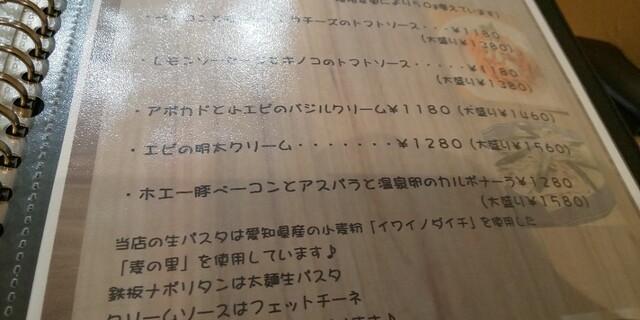 により50g増えています)
チーズのトマトソース・・・¥1180
(大盛り¥1380)
・レモンソーセージとキノコのトマトソース・・・・・¥1180
(大盛り¥1380)
・アボカドと小エビのバジルクリーム¥1180(大盛り¥1460)
・エビの明太クリーム・・・・・・・¥1280(大盛り¥1560)
・ホエー豚ベーコンとアスパラと温泉卵のカルボナーラ¥1280
(大盛り¥1580)
当店の生パスタは愛知県産の小麦粉「イワイノダイチ」を使用した
「麦の里」を使用しています♪
鉄板ナポリタンは太麺生パスタ
クリームソースはフェットチーネ